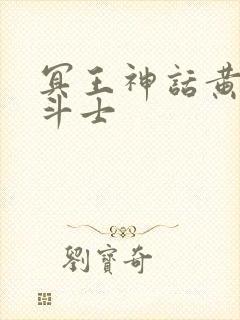 冥王神話黃
斗士
劉寶奇